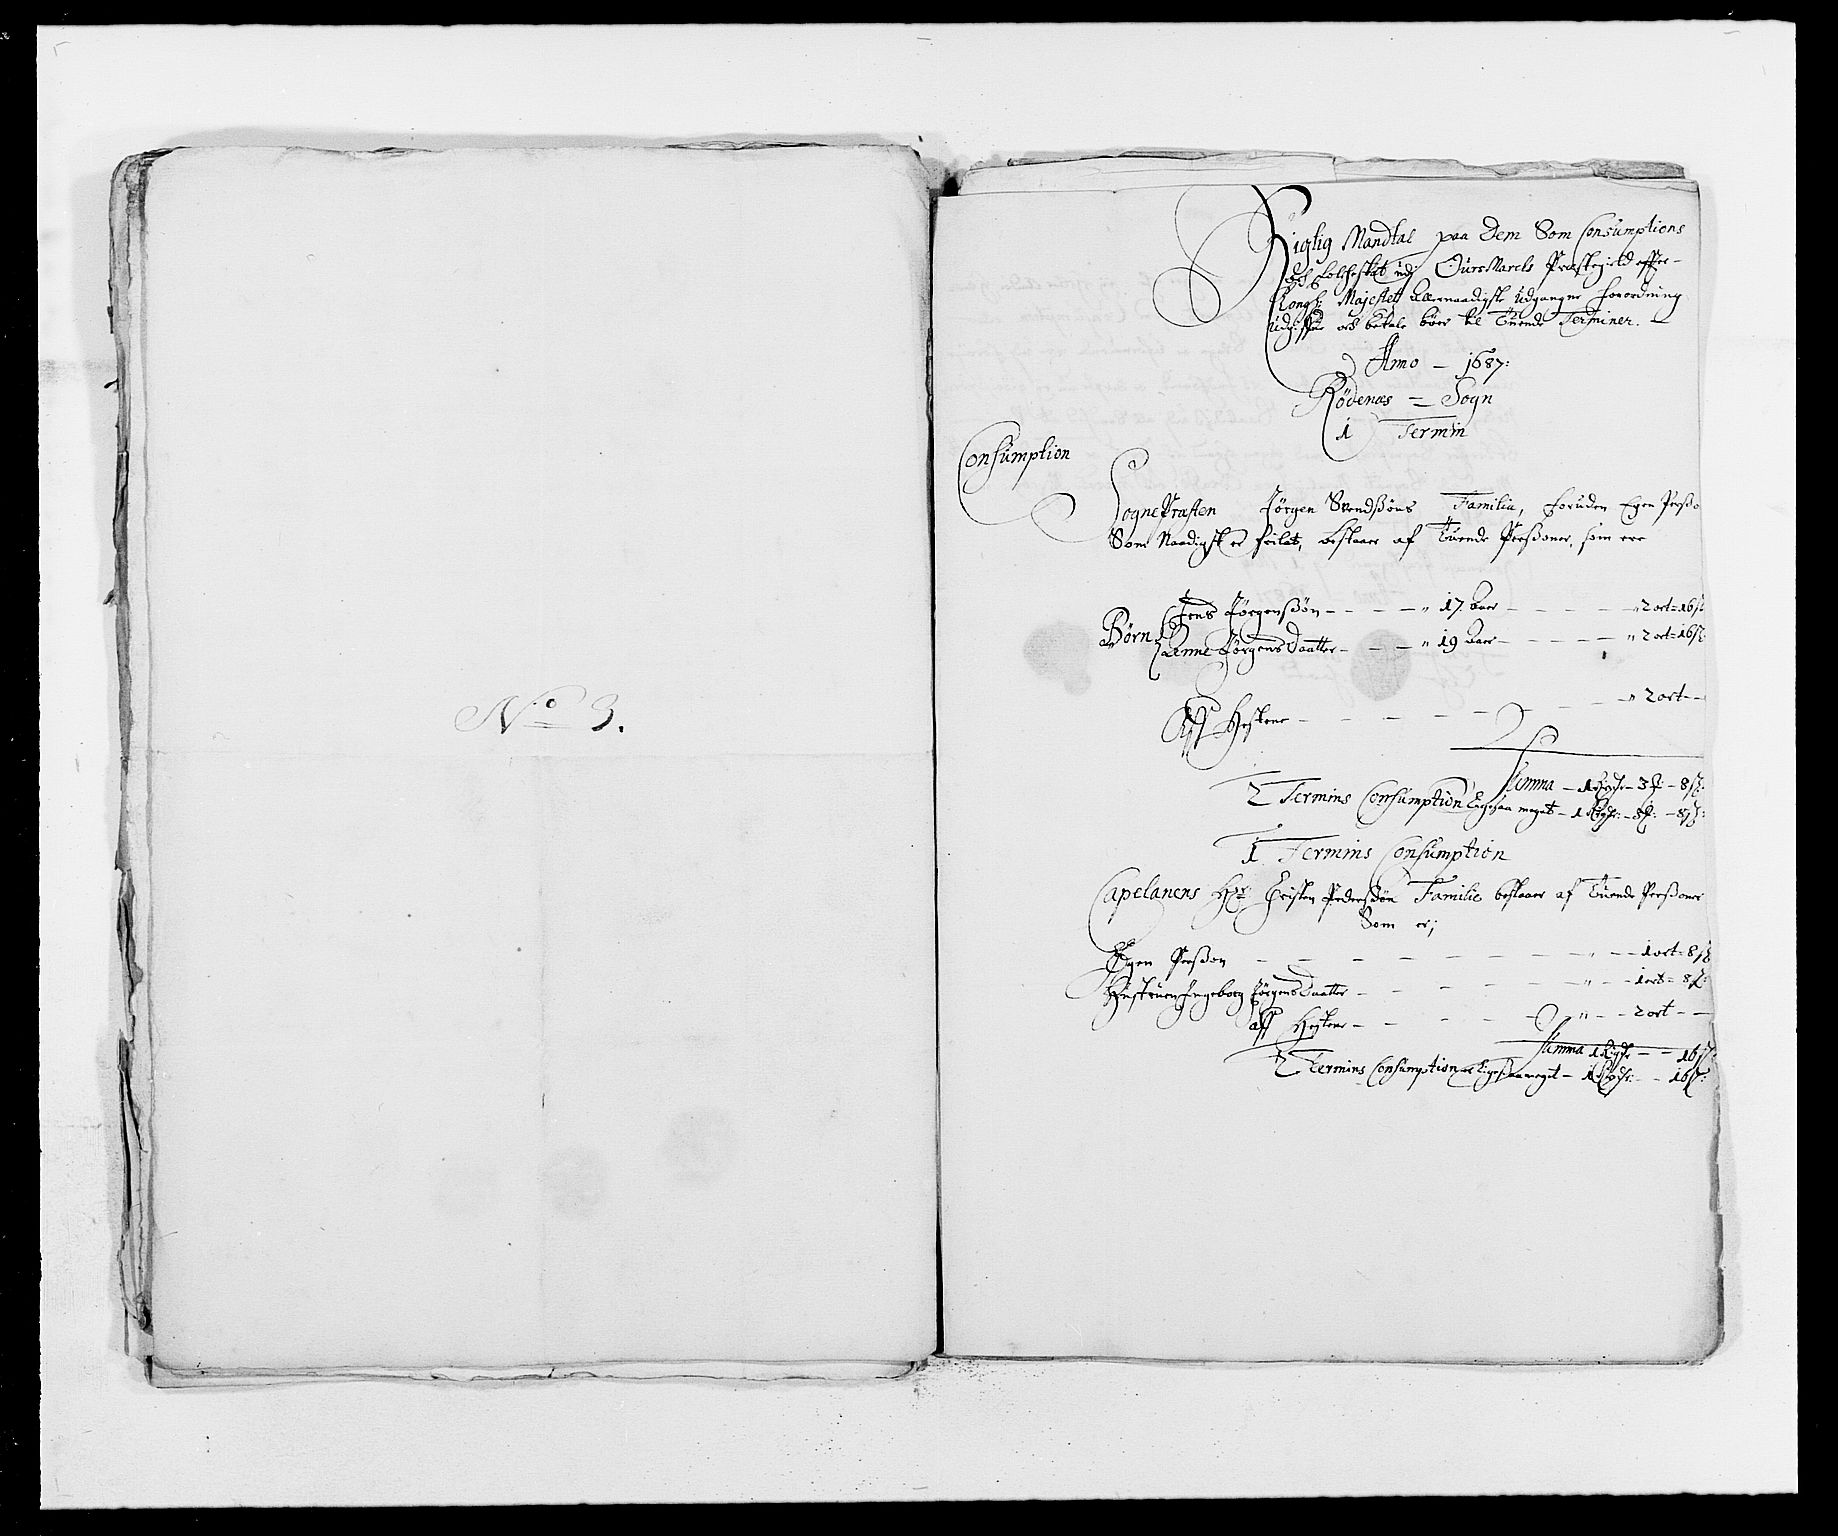 No 3.
Rigtig Mandtal paa dem Som Consumptions
och folcheskat udj Ours Marchs Præstegield effter
Kongl: Majestet allernaadigste udgangne forordning
Udgiffue och betale bør til Tuende Terminer.
Anno - 1687:
Rödenæs - Sogn
1 Termin
Consumption
SognePræsten Jörgen Svendßöns Familia, foruden Egen Perßo
Som Naadigst er forlat, bestaaer af Tuende Perßoner, som ere
Jens Jörgenßön - - - - " 17 Aar - - - - - " 2 ort = 16 ß
Börn
Anne Jörgens Daatter - - - " 19 Aar - - - - - " 2 ort = 16 ß
Aff Hestene - - - - - - - " 2 ort -
Summa - 1 Rixdr - 3 ß: - 8 ß:
2 Termins Consumption Ligesaa meget - 1 Rixdr: - 3 ß: - 8 ß:
1 Termins Consumption
Capelanens Hr Christen Pederßön Familie bestaaer af Tuende Perßoner
Som er;
Egen Perßon - - - - - - - " - - 1 ort = 8 ß
Hustruen Ingeborg Jörgens Daatter - - - - - " - - 1 ort = 8 ß:
aff Hestene - - - - - " - - 2 ort - -
Summa 1 Rixdr - - 16 ß:
2 Termins Consumption er Ligesaa meget - 1 Rixdr: - - 16 ß: